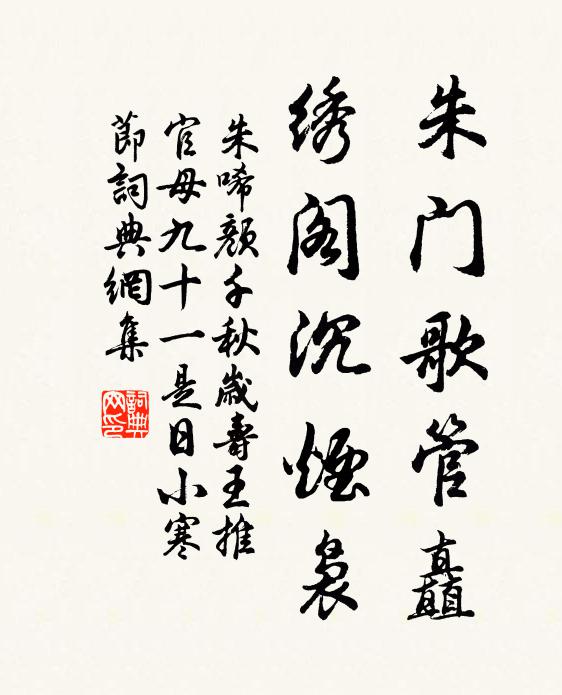 朱门歌管矗
绣阁沉煙裊
朱晞颜千秋歲壽王推
官母九十一是日小寒
節詞典網集
詞典网印